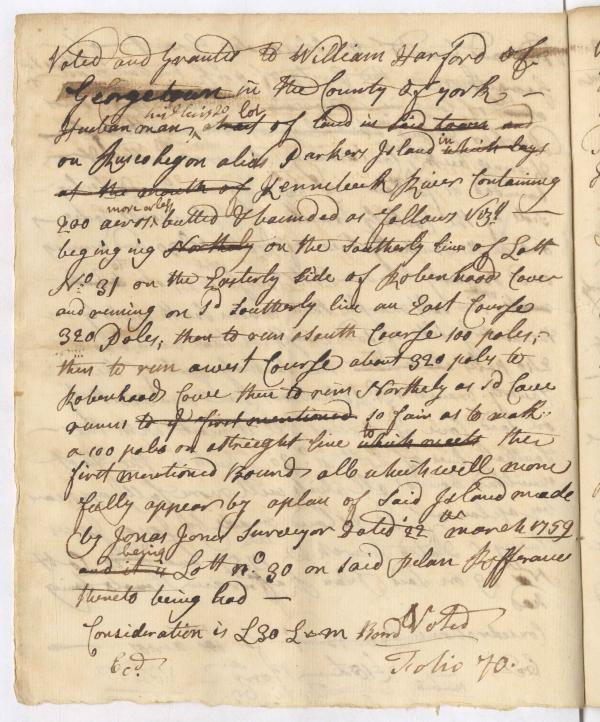 Voted and Granted to William Harford of
Georgetown in the County of york —
lot
Husbandman, a tract of land in said town and
on Ruscohegon alias Parkers Island in which lays
at the mouth of Kennebeck River Containing
more or less
200 acres butted & bounded as follows Vizt —
begining Northely on the Southerly line of Lott
No. 31 on the Easterly side of Robenhood Cove
and runing on sd Southerly line an East Course
320 Poles, then to run a South Course 100 poles,
then to run a west Course about 320 poles to
Robenhoods Cove then to run Northely as sd Cove
runns to ye first mentioned so fair as to make
a 100 poles on a streight line to which meets the
first mentioned Bounds all which will more
fully appear by a plan of Said Island made
by Jonas Jones Surveyor Dated 22 March 1759
being
and it is Lott no. 30 on said plan Refferance
thereto being had —
Consideration is £30 L m Bond Voted
Ecd. Folio 70.